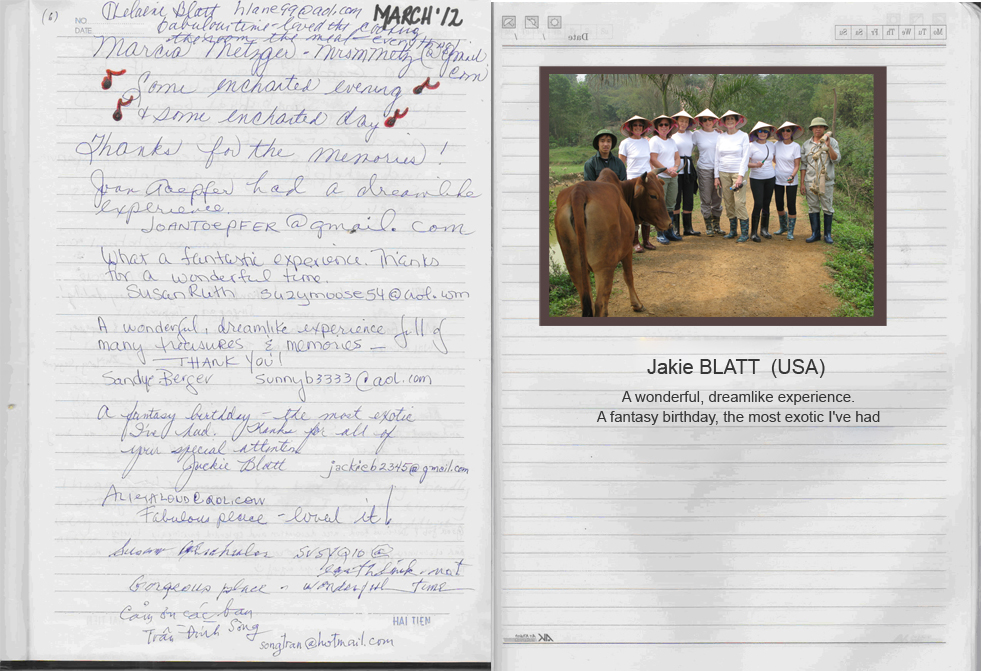 (6)
NO
DATE
Blatt hlane99@aol.com MARCH '12
fabulous time - loved the cooking
the room, the meal - everything
Marcia Metzger - Mrsmmetz@gmail
com
Some encharted evening
& some encharted day
Thanks for the memories!
Joan Toepfer had a dreamlike
experience.
JOANTOEPFER@gmail.com
What a fantastic experience. Thanks
for a wonderful time.
Susan Ruth suzymoose54@aol.com
A wonderful, dreamlike experience full of
many treasures & memories -
THANK YOU!
Sandye Berger sunnyb3333@aol.com
A fantasy birthday - the most exotic
I've had. Thanks for all of
your special attention
Jackie Blatt jackieb2345@gmail.com
Fabulous place - loved it!
Susan
earthlink.net
Gorgeous place - wonderful time
Cảm ơn các bạn
Trần Đình Song
songtran@hotmail.com
HAI TIEN
Date
Mo Tu We Th Fr Sa Su
Jakie BLATT (USA)
A wonderful, dreamlike experience.
A fantasy birthday, the most exotic I've had